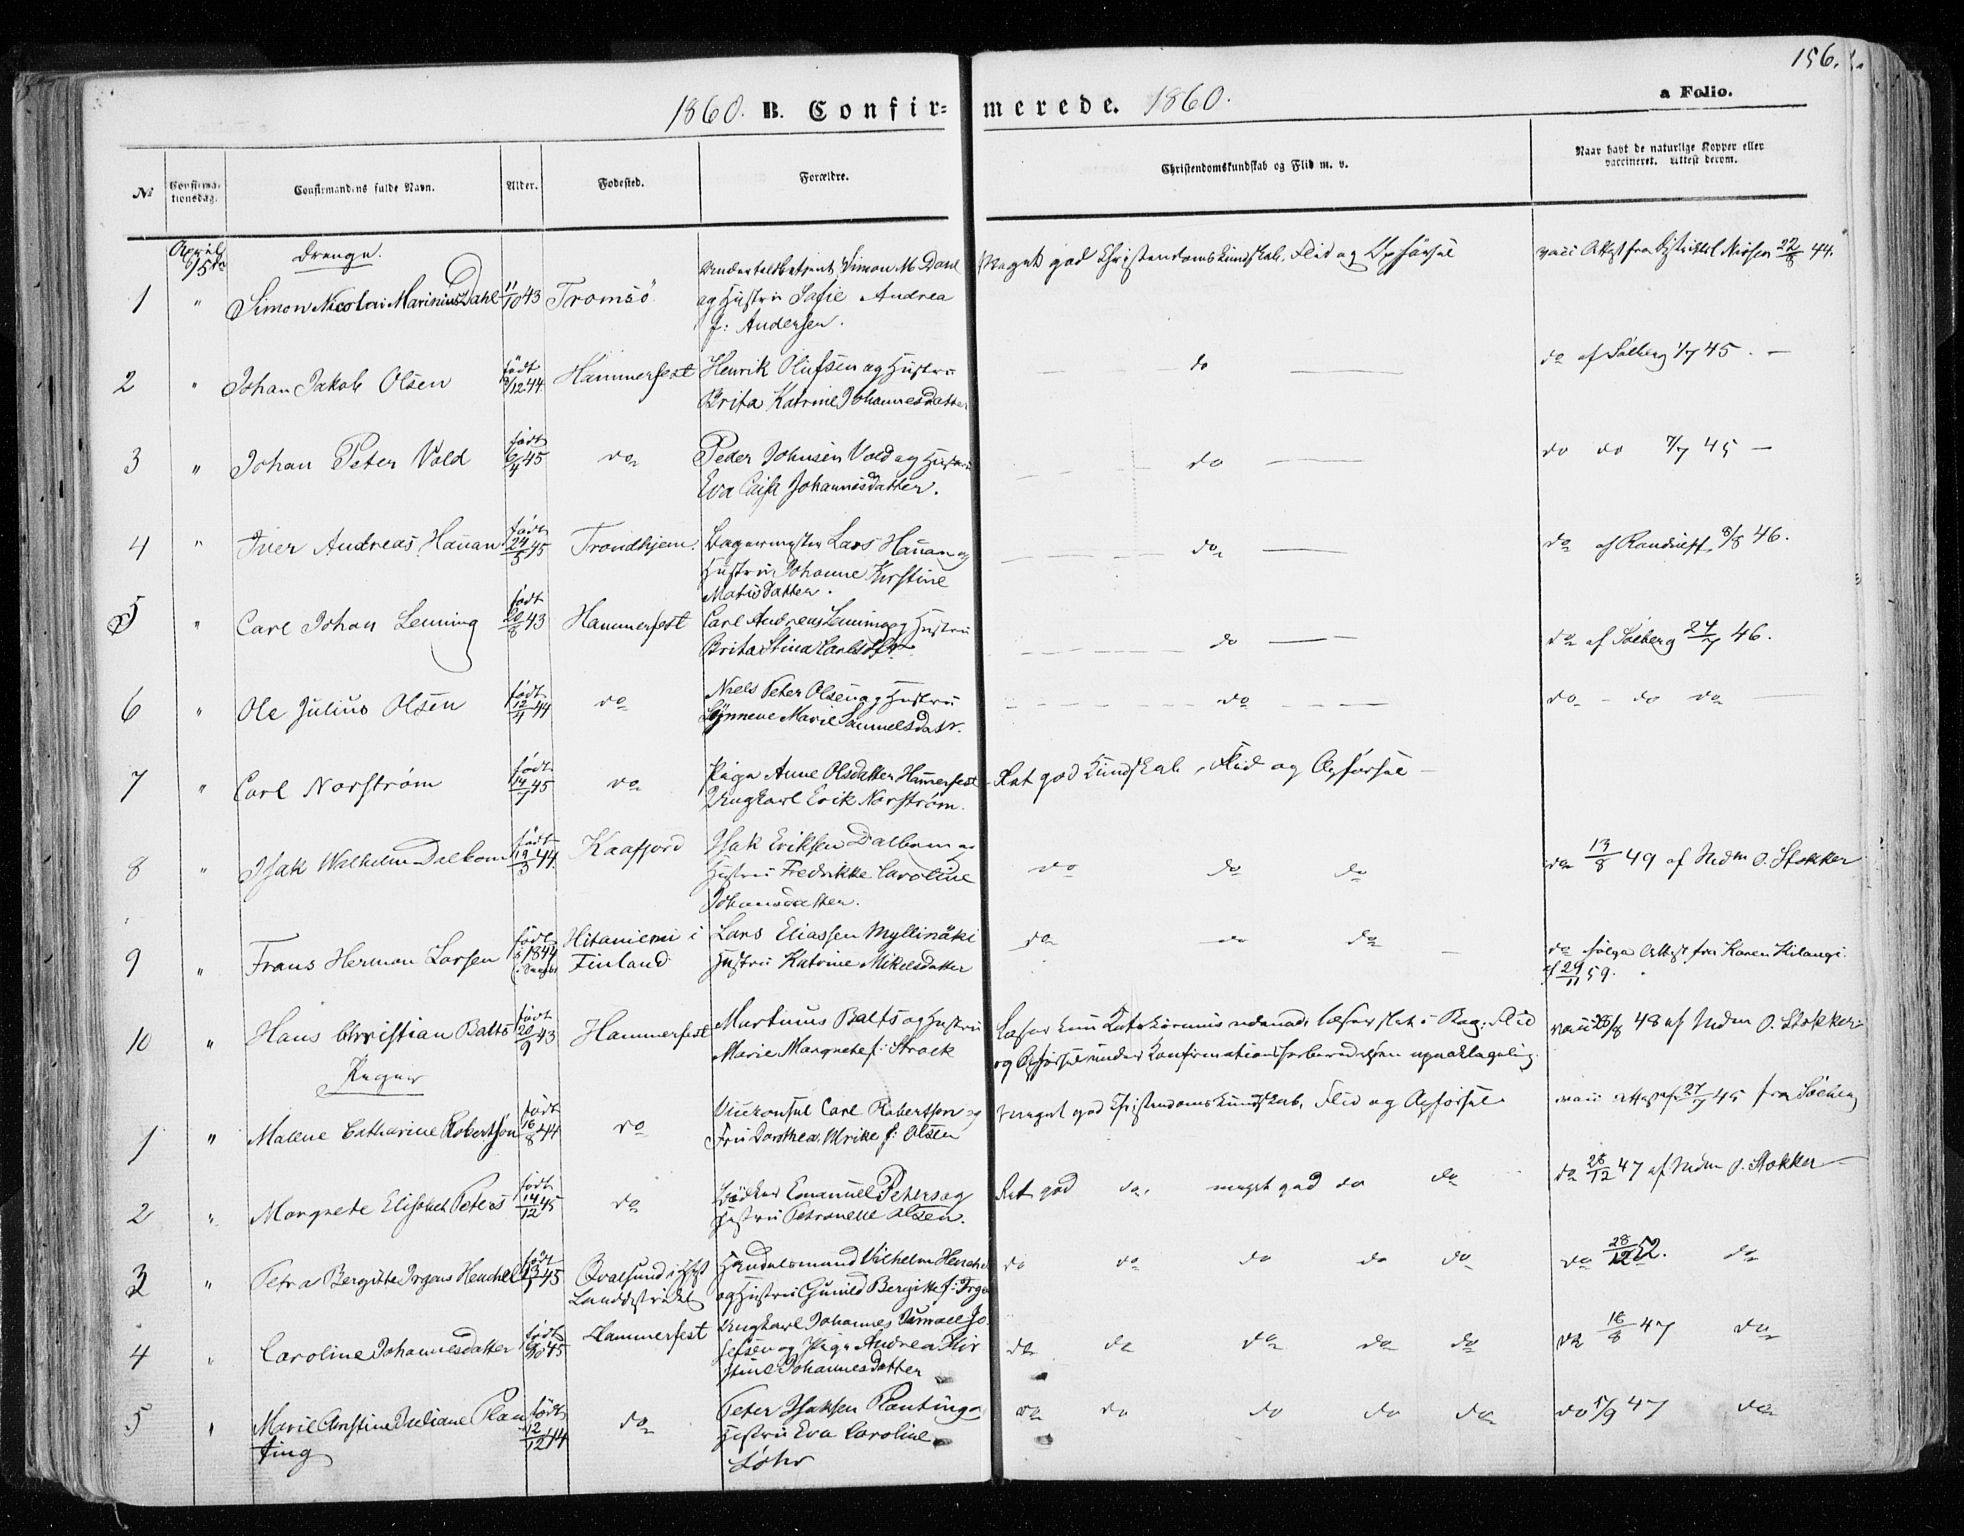 156.
1860. B. Confir- merede. 1860.
a Folio.
No
Confirma-
tionsdag.
Confirmandens fulde Navn.
Alder.
Fødested.
Forældre.
Christendomskundskab og Flid m. v.
Naar havt de naturlige Kopper eller
vaccineret. Attest derom.
April
15de
Drenge.
1 " Simon Nicolai Marinius Dahl 11/10 43 Tromsö
Simon M. Dahl
og Hustru Sofie Andrea
f: Andersen.
Meget god Christendomskundskab, Flid og Opförsel
vacc Attest fra Nissen 22/8 44.
2 " Johan Jakob Olsen födt /12 44 Hammerfest
Henrik Olufsen og Hustru
Brita Katrine Johannesdatter
do
do af Solberg 1/7 45. –
3 " Johan Peter Vold födt 6/4 45 do
Peder Johnsen Vold og Hustru
Eva Cajsa Johannesdatter.
do
do do 7/7 45 –
4 " Iver Andreas Hauan födt 24/5 45 Trondhjem.
Lars Hauan og
Hustru Johanne Kirstine
Matisdatter.
do
do af 8/8 46.
5 " Carl Johan Lemming födt 20/8 43 Hammerfest
Carl Andreas Lemming og Hustru
Brita Stina
do
do af Solberg 24/7 46.
6 " Ole Julius Olsen födt 12/4 44 do
Niels Peter Olsen og Hustru
Synneve Marie Samuelsdatr.
do
do – do do
7 " Carl Norström födt 14/7 45 do
Pige Anne Olsdatter Hammerfest
Ungkarl Erik Norström.
Ret god Kundskab, Flid og Opförsel –
8 " Isak Wilhelm Dalbom födt 19/3 44 Kaafjord
Isak Eriksen Dalbom og
Hustru Fredrikke Caroline
Johansdatter.
do do do
do 13/8 49 af Mdm O. Stokker
9 " Frans Herman Larsen födt i 1844 Hitaniemi i
Finland
Lars Eliassen Myllinäki
Hustru Katrine Mikelsdatter
do do do
do ifölge Attest fra Karen Kitangi
af 29/11 59.
10 " Hans Christian Balts födt 20/9 43 Hammerfest
Martinus Balts og Hustru
Marie Margrete f: Strock
Læser kun Katekismus udenad, læser slet i Bog. Flid
og Opförsel under Konfirmationsforberedelsen upaaklagelig.
vacc 28/8 48 af Mdm O. Stokker
Piger
1 " Malene Catharine Robertson födt 16/8 44 do
Vicekonsul Carl Robertson og
Fru Dorothea Ulrike f: Olsen
meget god Christendomskundskab, Flid og Opförsel
vacc attest af 27/7 45 fra Solberg
2 " Margrete Elisabet Peters födt 14/12 45 do
Bödker Emanuel Peters og
Hustru Petronelle Olsen.
Ret god do, meget god do do
do 28/12 47 af Mdm O. Stokker
3 " Petra Bergitte Irgens Henckel födt 13/1 45 Qvalsund i
Landdistriktet
Handelsmand Vilhelm Henckel
og Hustru Gunild Bergitte f: Irgens
do do do do do
do 28/12 52. do
4 " Caroline Johannesdatter födt /10 45 Hammerfest
Ungkarl Johannes Jo
sefsen og Pige Andrea Kir
stine Johannesdatter
do do do do do
do 16/8 47 do
5 " Marie Christine Juliane Plan
ting födt 12/12 44 do
Peter Isaksen Planting og
Hustru Eva Caroline
Löhr
do do do do do
do 5/9 47 do